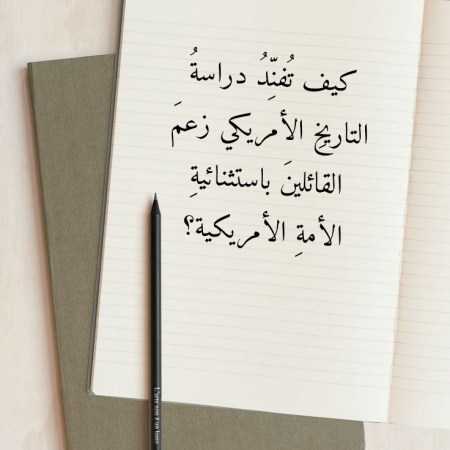 كيف تُفنِّدُ دراسةُ
التاريخِ الأمريكي زعمَ
القائلينَ باستثنائيةِ
الأمةِ الأمريكية؟